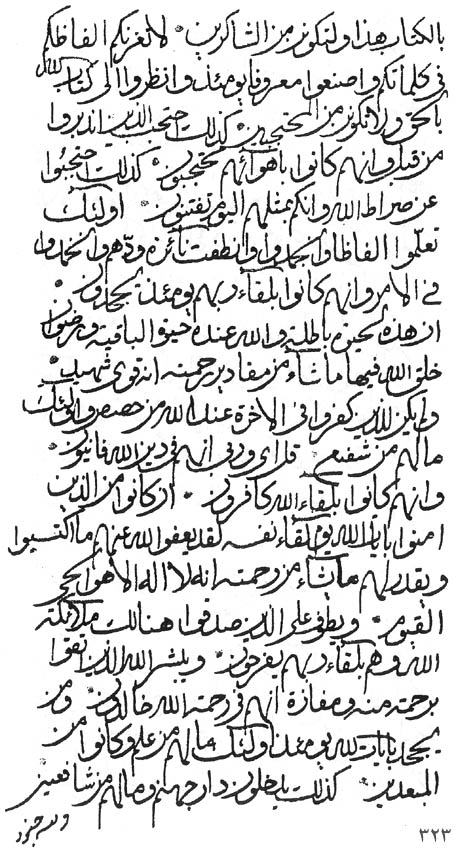 بالكتاب هذا ولتكونن من الشاكرين لا تغرنكم الفاظكم
في كلماتكم واصنعوا معروفا يومئذ وانظروا الى كتاب الله
بالحق ولا تكونن من المحتجبين كذلك احتجب الذين انذروا
من قبل وانهم كانوا باهوائهم محتجبون كذلك احتجبوا
عن صراط الله وانكم بمثلهم اليوم تفتنون اولئك
تعلموا الفاظا وانجمدوا وانطفت نائرة ودهم وانخمدوا
في الامر وانهم كانوا بلقاء ربهم يومئذ يجحدون
ان هذه لحيوة باطلة والله عنده حيوة الباقية
خلق الله فيها ما شاء من مقادير رحمته انه قوي شهيد
ولم يكن للذين كفروا في الاخرة عند الله من حصن واولئك
ما لهم من شفيع قل اي وربي انهم في دين الله فانيون
وانهم كانوا بلقاء الله كافرون ان كانوا من الذين
امنوا بايات الله يوم لقاء نفسه لقد يعفوا الله عنهم ما اكتسبوا
ويقدر لهم ما شاء من رحمته انه لا اله الا هو الحي
القيوم على الذين صدقوا هنالك ملائكة
الله وهم بلقاء ربهم يفرحون ويبشر الله الذين اتقوا
برحمة منه ومفازة انهم في رحمة الله خالدون ومن
يجحد بايات الله يومئذ اولئك ما لهم من علم وكانوا من
المبعدين كذلك يدخلون دار جهنم وما لهم من شافعين
٣٢٣